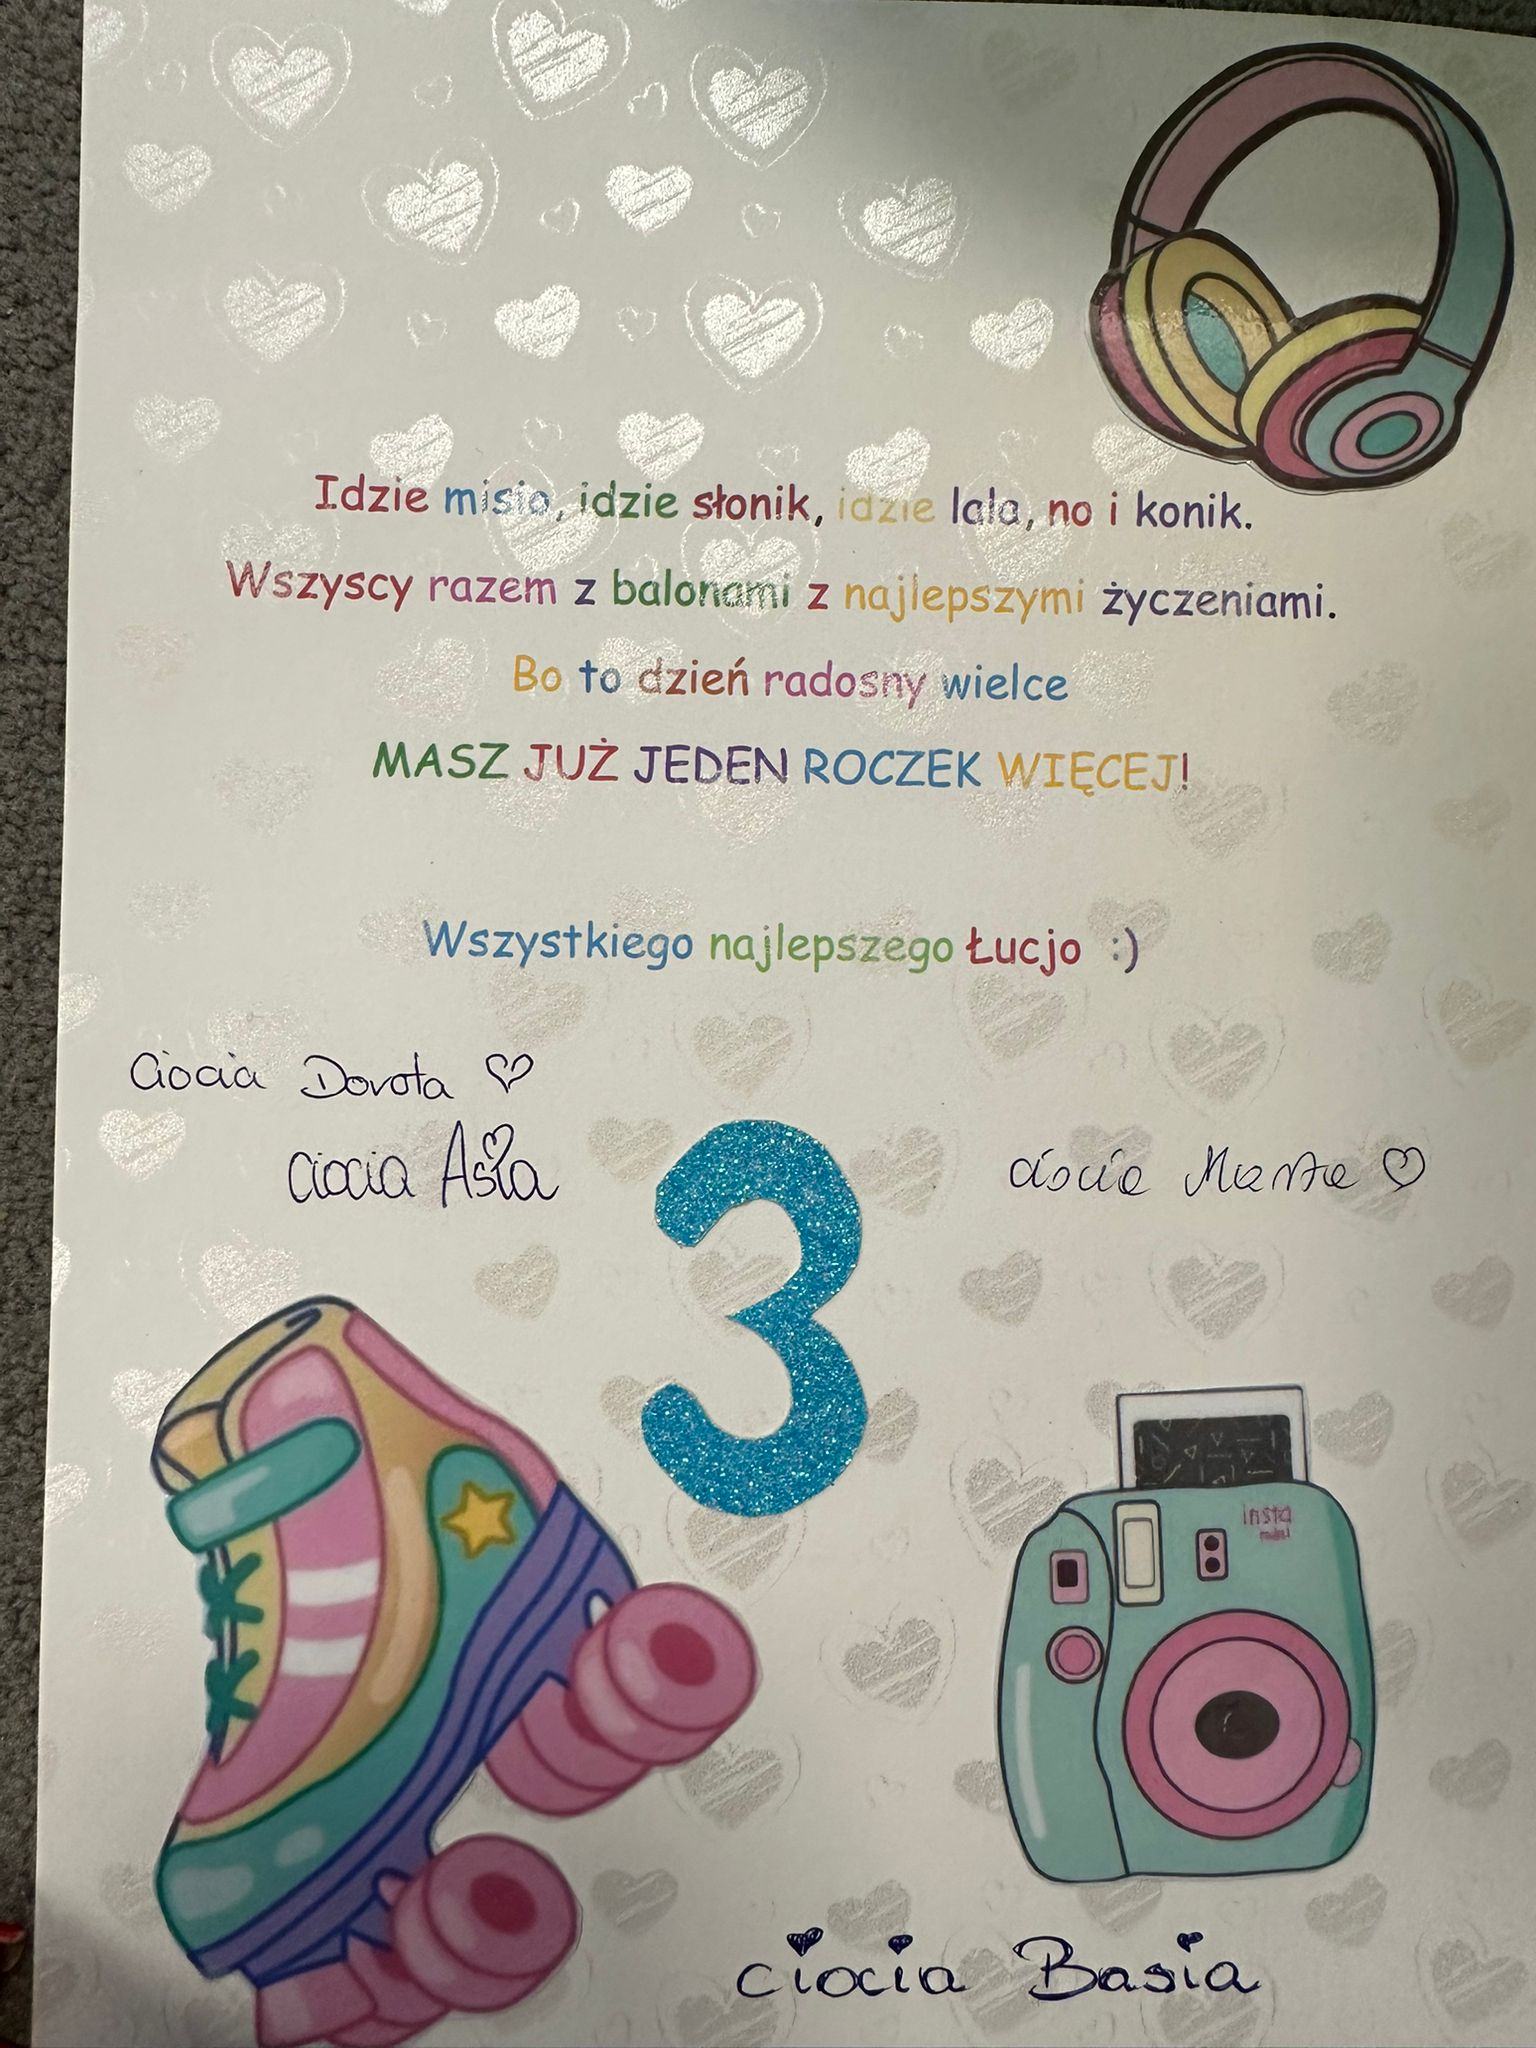 Idzie misio, idzie słonik, idzie lala, no i konik.
Wszyscy razem z balonami z najlepszymi życzeniami.
Bo to dzień radosny wielce
MASZ JUŻ JEDEN ROCZEK WIĘCEJ!
Wszystkiego najlepszego Łucjo :)
Ciocia Dorota ♡
Ciocia Asia
3
ciocia Marta ♡
insta
ciocia Basia